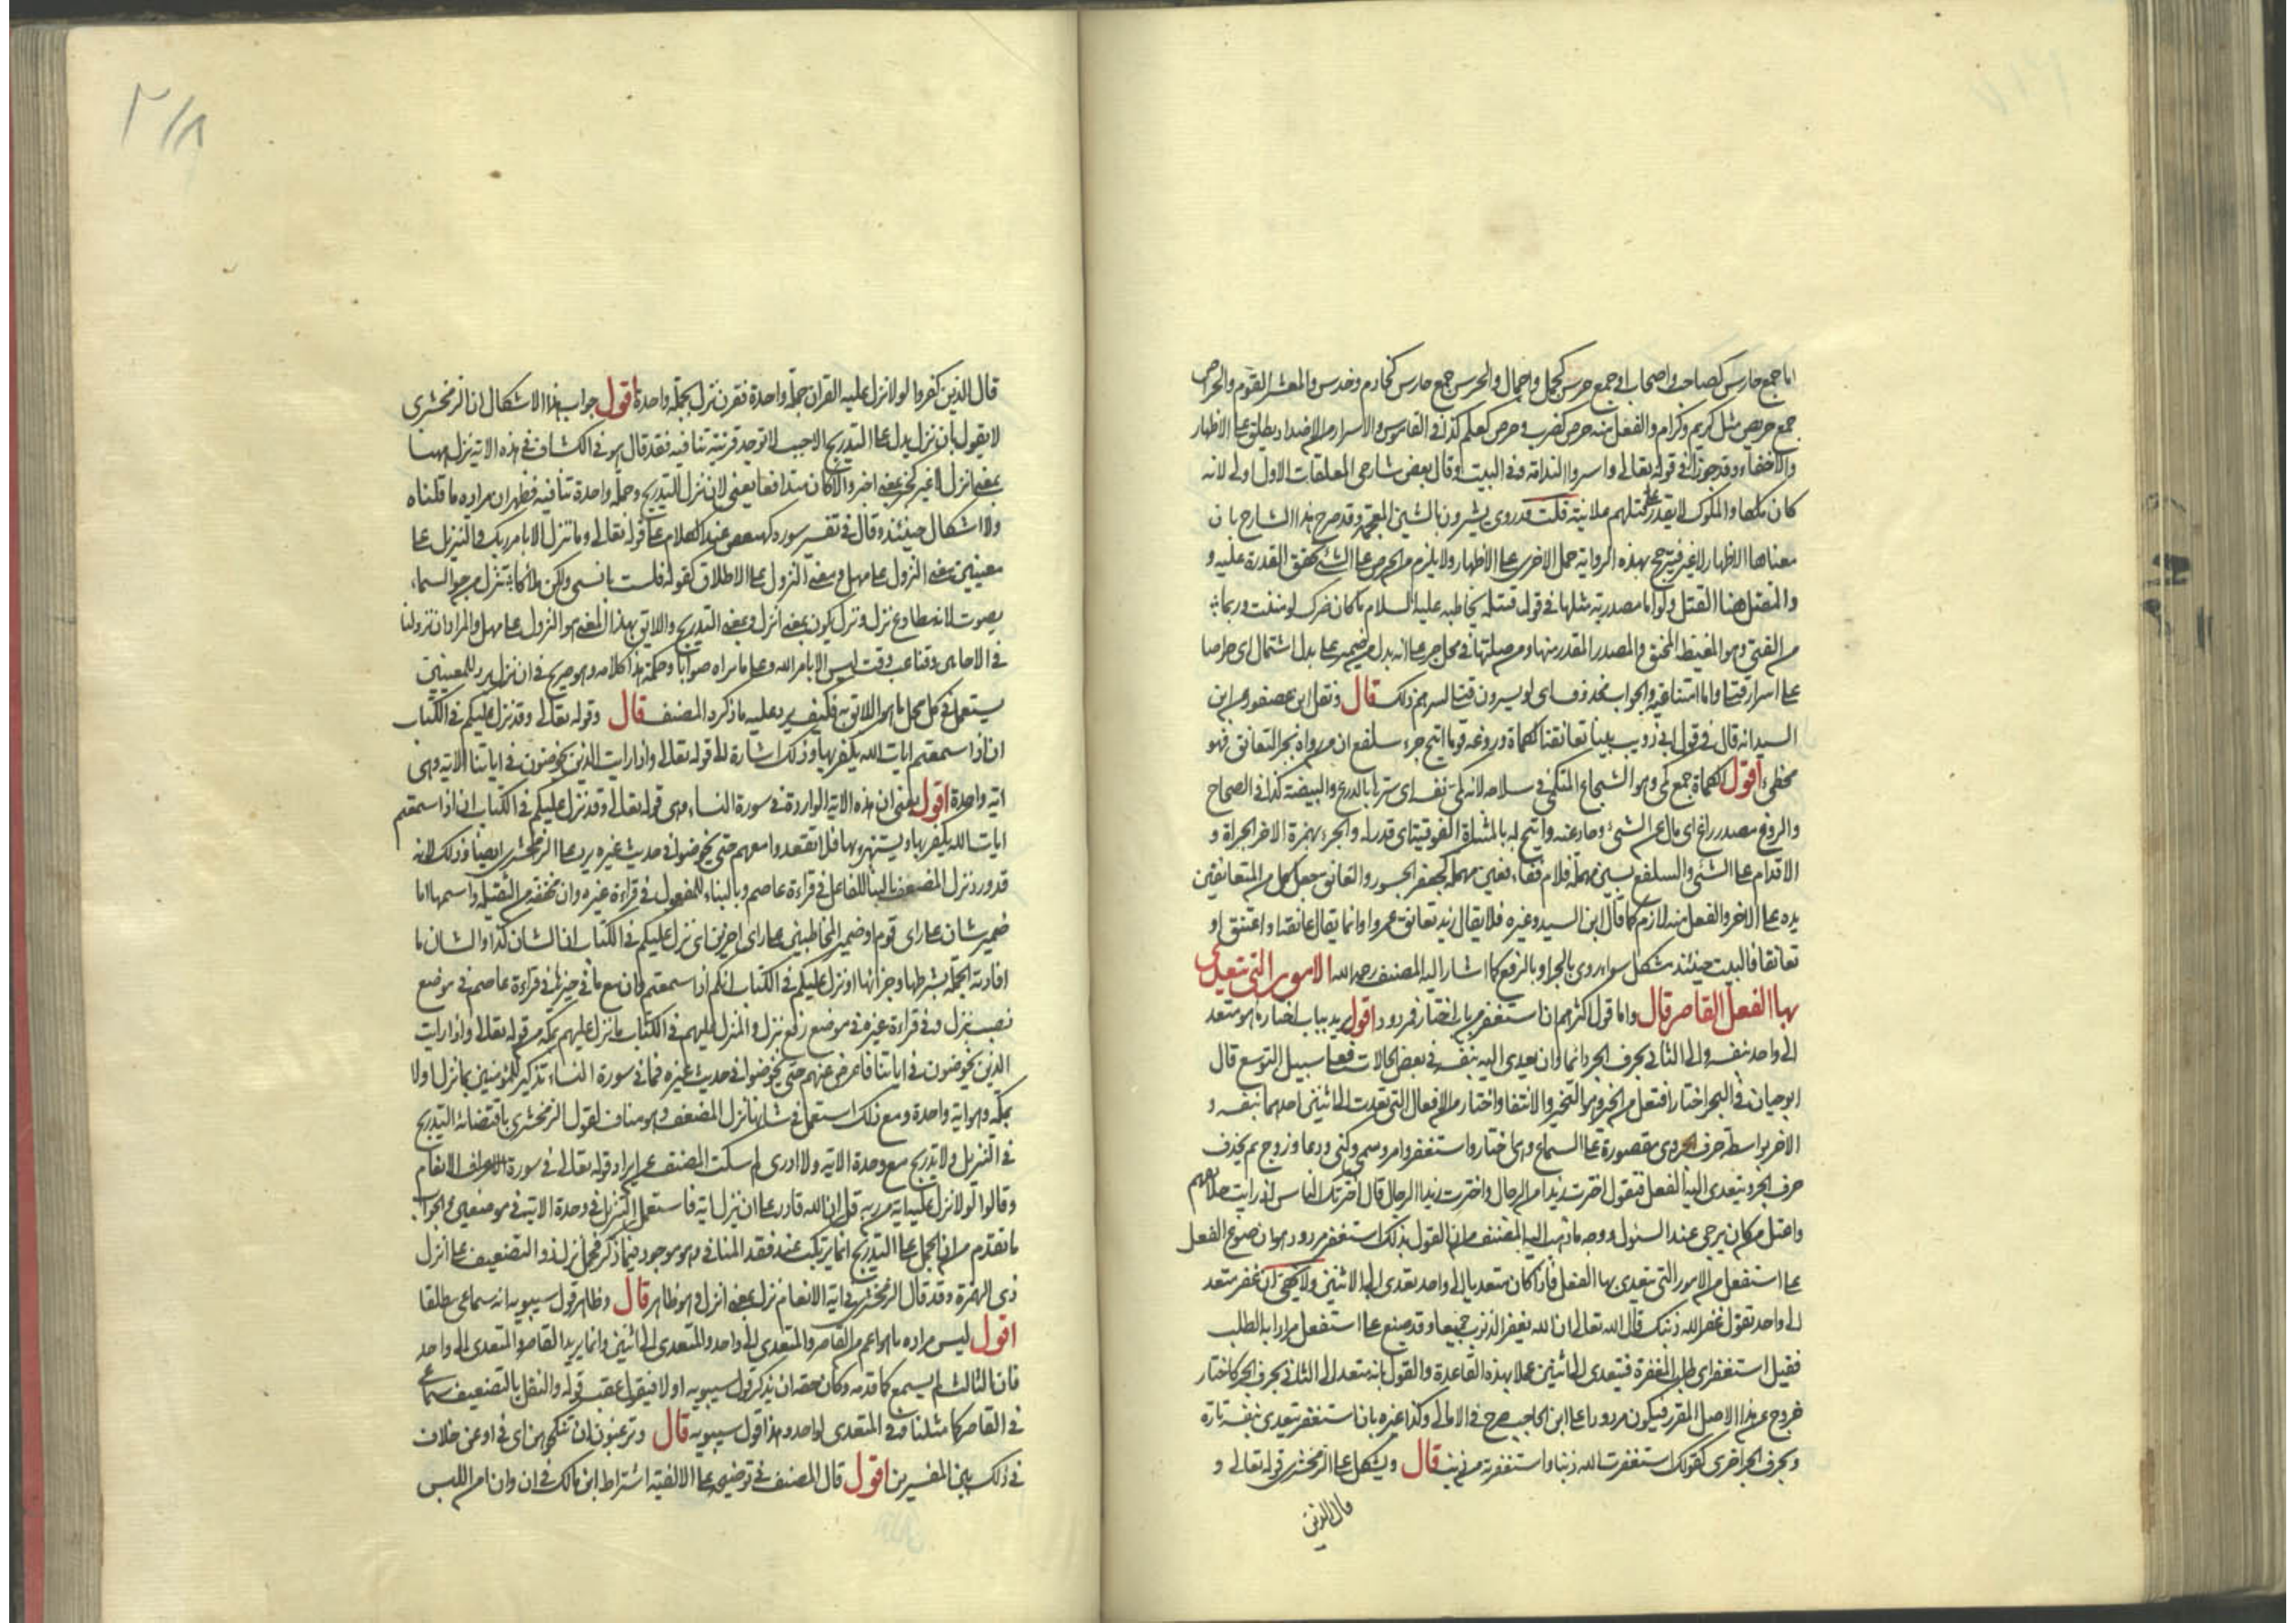 اما جمع حارس كصاحب واصحاب او جمع حرس كجمل واجمال والحرس جمع حارس كخادم وخدس والمعشر القوم والحراص
جمع حريص مثل كريم وكرام والفعل منه حرص كضرب وحرص كعلم كذا في القاموس والاسرار من الاضداد يطلق على الاظهار
والاخفاء وقد جوزا في قوله تعالى واسروا الندامة وفي البيت وقال بعض شارحي المعلقات الاول اولى لانه
كان ملكا والملوك لا يقدر على قتلهم علانية قلت قد روى يشرون بالشين المعجمة وقد صرح هذا الشارح بان
معناها الاظهار لا غير فيترجح بهذه الرواية حمل الاخرى على الاظهار ولا يلزم من الحرص على الشئ تحقق القدرة عليه و
والمقتل هنا القتل ولو اما مصدرية مثلها في قول قتيلة يخاطبه عليه السلام ما كان ضرك لو مننت وربما
من الفتى وهو المغيظ المحنق والمصدر المقدر منها ومن صلتها في محل جر على انه بدل من ضمير على بدل اشتمال اى حراصا
على اسرار قتلى واما امتناعية والجواب محذوف اى لو يسرون قتلى لسرهم ذلك قال ونقل ابن عصفور عن ابن
السيد انه قال في قول ابى ذويب بينا تعانقه الكماة وروغه يوما اتيح جرئ سلفع ان من رواه بجر التعانق فهو
مخطئ اقول الكماة جمع كمى وهو الشجاع المتكمى في سلاحه لانه كمى نفسه اى سترها بالدرع والبيضة كذا في الصحاح
والروغ مصدر راغ اى مال عن الشئ وحاد عنه واتيح له بالمثناة الفوقية اى قدر له والجرئ بهمزة الاخر الجراة و
الاقدام على الشئ والسلفع بسين مهملة فلام ففاء فعين مهملة كجعفر الجسور والتعانق جعل كل من المتعانقين
يده على الاخر والفعل منه لازم كما قال ابن السيد وغيره فلا يقال زيد تعانق عمروا وانما يقال عانقه او اعتنق او
تعانقا فالبيت حينئذ مشكل سواء روى بالجر او بالرفع كما اشار اليه المصنف رحمه الله الامور التى يتعدى
بها الفعل القاصر قال واما قول اكثرهم ان استغفر من باب اختار فمردود اقول يريد بباب اختار ما هو متعد
الى واحد بنفسه والى الثانى بحرف الجر دائما وان تعدى اليه بنفسه في بعض الحالات فعلى سبيل التوسع قال
ابو حيان في البحر اختار افتعل من الخير وهو التخير والانتقا واختار من الافعال التى تعدت الى اثنين احدهما بنفسه و
الاخر بواسطة حرف الجر وهى مقصورة على السماع وهى اختار واستغفر وامر وسمى وكنى ودعا وزوج ثم يحذف
حرف الجر ويتعدى اليها الفعل فتقول اخترت زيدا من الرجال واخترت زيدا الرجال قال اخترتك الناس اذ رثت خلايقهم
واعتل من كان يرجى عنده السول ووجه ما ذهب اليه المصنف من ان القول بذلك استغفر مردود هو ان صوغ الفعل
على استفعل من الامور التى يتعدى بها الفعل فاذا كان متعديا الى واحد تعدى الى الاثنين ولا يخفى ان غفر متعد
الى واحد تقول غفر الله ذنبك قال الله تعالى ان الله يغفر الذنوب جميعا وقد صيغ على استفعل مرادا به الطلب
فقيل استغفر اى طلب المغفرة فيتعدى الى اثنين عملا بهذه القاعدة والقول بانه متعد الى الثانى بحرف الجر كاختار
خروج عن هذا الاصل المقرر فيكون مردودا على ابن الحاجب صرح في الامالى وكذا غيره بان استغفر يتعدى بنفسه تارة
وبحرف الجر اخرى كقولك استغفرت الله ذنبا واستغفرته من ذنب قال ويشكل على الزمخشرى قوله تعالى و
قال الذين
٢١٨
قال الذين كفروا لولا نزل عليه القران جملة واحدة فقرن نزل بجملة واحدة اقول جواب هذا الاشكال ان الزمخشرى
لا يقول بان نزل يدل على التدريج الا حيث لا توجد قرينة تنافيه فقد قال هو في الكشاف في هذه الاية نزل ههنا
بمعنى انزل لا غير كخبر بمعنى اخبر والا كان متدافعا يعنى لان نزل للتدريج وجملة واحدة تنافيه فظهر ان مراده ما قلناه
ولا اشكال حينئذ وقال في تفسير سورة كهيعص عند الكلام على قوله تعالى وما نتنزل الا بامر ربك والتنزل على
معنيين معنى النزول على مهل ومعنى النزول على الاطلاق كقوله فلست بانسى ولكن لملاك تنزل من جو السماء
يصوب لانه مطاوع نزل ونزل يكون بمعنى انزل وبمعنى التدريج واللايق بهذا المعنى هو النزول على مهل والمراد ان نزولنا
في الاحايين وقتا غب وقت ليس الا بامر الله وعلى ما يراه صوابا وحكمة هذا كلامه وهو صريح في ان نزل يرد للمعنيين
يستعمل في كل محل ما هو اللايق به فكيف يرد عليه ما ذكره المصنف قال وقوله تعالى وقد نزل عليكم في الكتاب
ان اذا سمعتم ايات الله يكفر بها وذلك اشارة الى قوله تعالى واذا رايت الذين يخوضون في اياتنا الاية وهى
اية واحدة اقول يعنى ان هذه الاية الواردة في سورة النساء وهى قوله تعالى وقد نزل عليكم في الكتاب ان اذا سمعتم
ايات الله يكفر بها ويستهزء بها فلا تقعدوا معهم حتى يخوضوا في حديث غيره يرد على الزمخشرى ايضا وذلك لانه
قد ورد نزل المضعف بالبناء للفاعل في قراءة عاصم وبالبناء للمفعول في قراءة غيره وان مخففة من الثقيلة واسمها اما
ضمير شان على راى قوم او ضمير المخاطبين على راى اخرين اى نزل عليكم في الكتاب ان الشان كذا والشان ما
افادته الجملة بشرطها وجزائها او نزل عليكم في الكتاب انكم اذا سمعتم وان مع ما في حيزها في قراءة عاصم في موضع
نصب بنزل وفي قراءة غيره في موضع رفع بنزل والمنزل عليهم في الكتاب ما نزل عليهم بمكة من قوله تعالى واذا رايت
الذين يخوضون في اياتنا فاعرض عنهم حتى يخوضوا في حديث غيره فما في سورة النساء تذكير للمؤمنين بما نزل اولا
بمكة وهو اية واحدة ومع ذلك استعمل في شانها نزل المضعف وهو مناف لقول الزمخشرى باقتضائه التدريج
في التنزيل ولا تدريج مع وحدة الاية ولا ادرى لم سكت المصنف عن ايراد قوله تعالى في سورة الانعام
وقالوا لولا نزل عليه اية من ربه قل ان الله قادر على ان ينزل اية فاستعمل التنزيل في وحدة الاية في موضعين والجواب
ما تقدم من ان الحمل على التدريج انما يرتكب عند فقد المنافى وهو موجود فيما ذكر فحمل نزل ذو التضعيف على انزل
ذى الهمزة وقد قال الزمخشرى في اية الانعام نزل بمعنى انزل وهو ظاهر قال وظاهر قول سيبويه انه سماعى مطلقا
اقول ليس مراده ما هو اعم من القاصر والمتعدى الى واحد والمتعدى الى اثنين وانما يريد القاصر والمتعدى الى واحد
فان الثالث لم يسمع كما قدمه وكان حقه ان يذكر قول سيبويه اولا فيقول عقب قوله والنقل بالتضعيف سماعى
في القاصر كما مثلنا وفي المتعدى لواحد وهذا قول سيبويه قال وترغبون ان تنكحوهن اى في او عن خلاف
في ذلك بين المفسرين اقول قال المصنف في توضيحه على الالفية اشتراط ابن مالك في ان وان امن اللبس